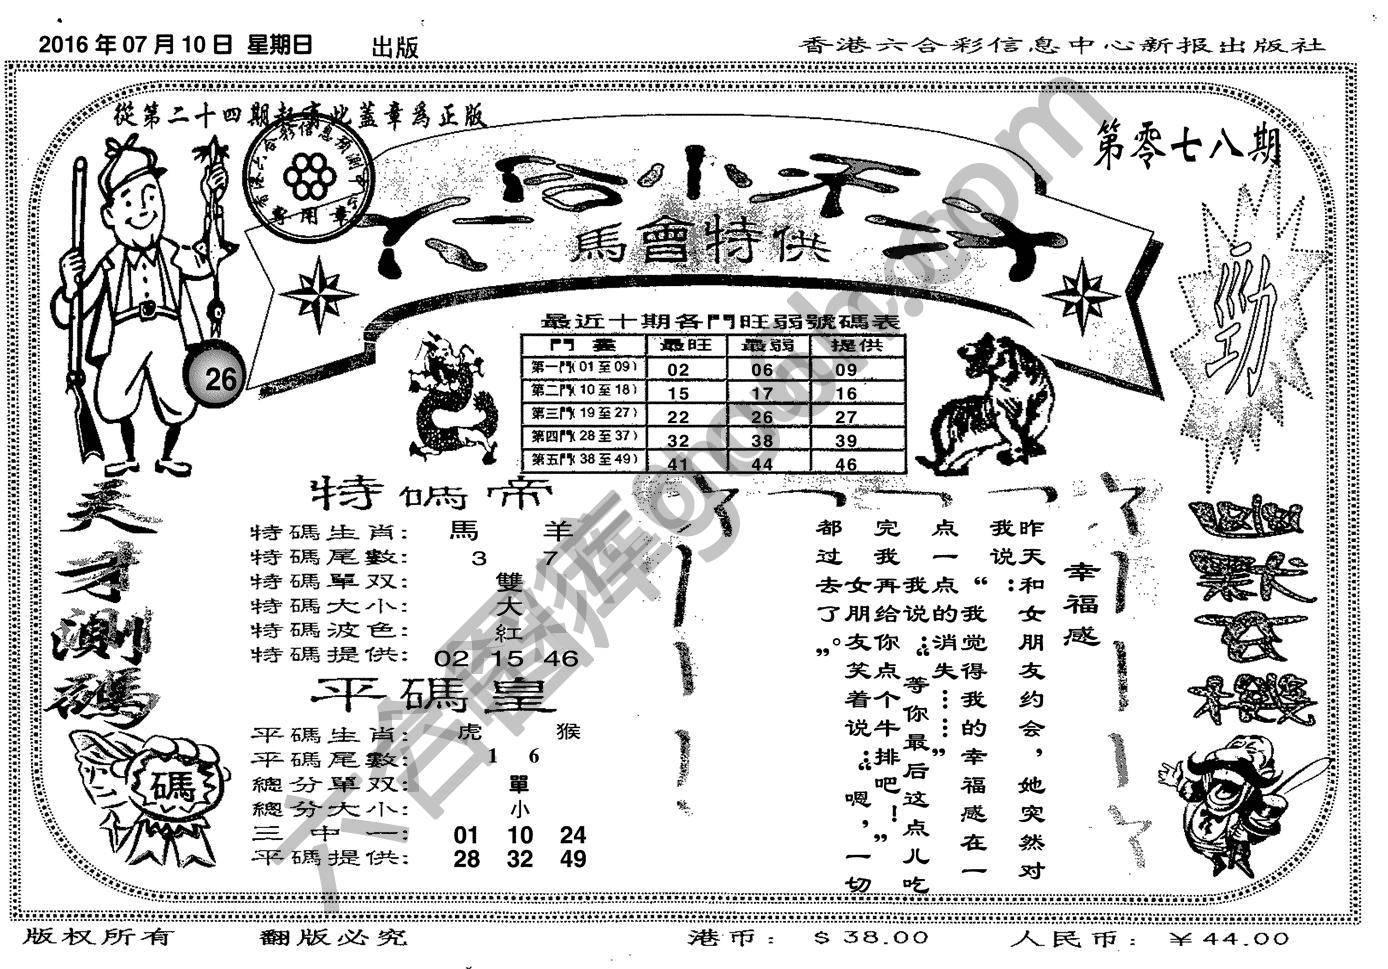 2016 年 07 月 10 日 星期日 出版
香港六合彩信息中心新报出版社
從第二十四期起 此蓋章爲正版
第零七八期
專用章
馬會特供
勁
26
最近十期各門旺弱號碼表
最旺 最弱 提供
第一門(01至09) 02 06 09
第二門(10至18) 15 17 16
第三門(19至27) 22 26 27
第四門(28至37) 32 38 39
第五門(38至49) 41 44 46
天才測碼
碼
特碼帝
特碼生肖: 馬 羊
特碼尾數: 3 7
特碼單双: 雙
特碼大小: 大
特碼波色: 紅
特碼提供: 02 15 46
平碼皇
平碼生肖: 虎 猴
平碼尾數: 1 6
總分單双: 單
總分大小: 小
三中一: 01 10 24
平碼提供: 28 32 49
幸福感
昨天和女朋友约会，她突然对
我说：“我觉得我的幸福感在一
点一点的消失……”
我说：“等你最后这点儿吃
完我再给你点个牛排吧！”
女朋友笑着说：“嗯，一切
都过去了。”
六合圖庫
版权所有 翻版必究 港币: $ 38.00 人民币: ¥ 44.00